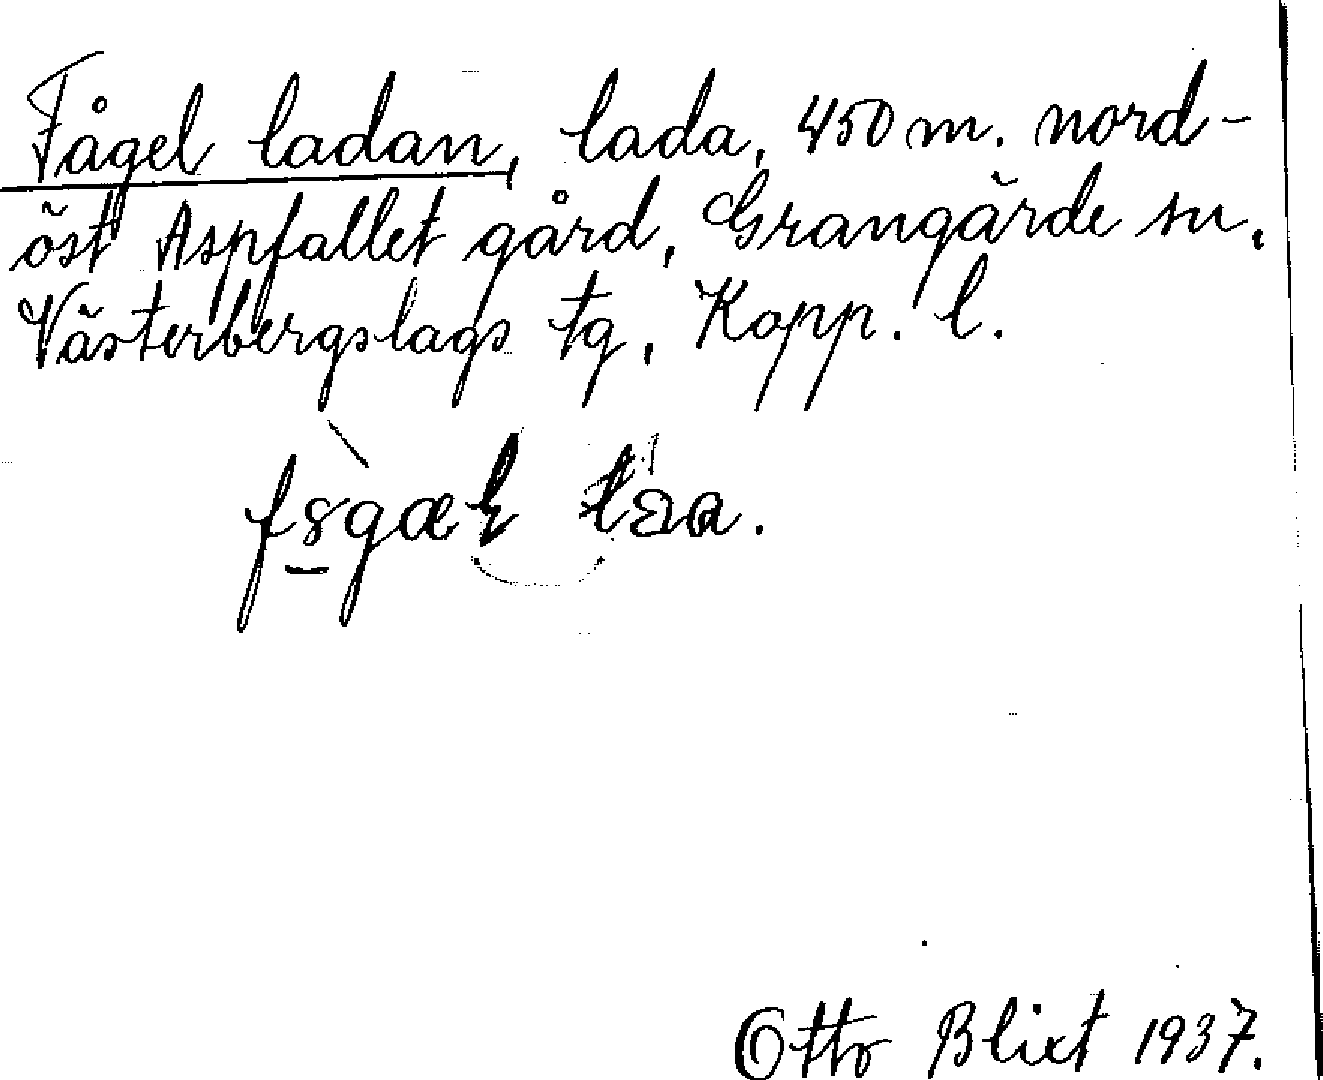 Fågel ladan, lada, 450 m. nord-
öst Aspfallet gård, Grangärde sn.
Västerbergslags tg, Kopp. l.
Otto Blixt 1937.